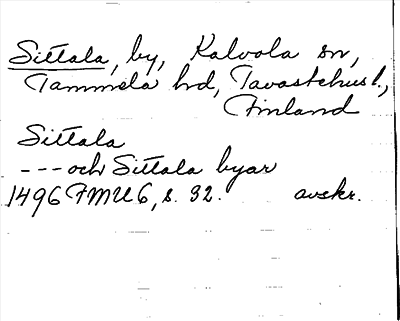 Sittala, by, Kalvola sn,
Tammela hd, Tavastehus l.,
Finland
Sittala
--- och Sittala byar
1496 FMU 6, s. 32. avskr.